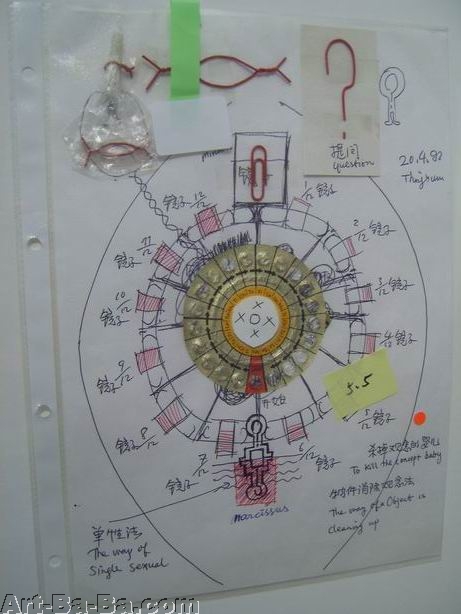 提问
question
20.4.92
镜子
12/12 镜子
1/12 镜子
2/12 镜子
11/12 镜子
3/12 镜子
10/12 镜子
4/12 镜子
9/12 镜子
5.5
开始
5/12 镜子
8/12 镜子
7/12 镜子
6/12 镜子
杀掉观念的婴儿
To kill the concept baby
物件消除观念法
The way of a Object is
cleaning up
单性法
The way of
Single sexual
Narcissus
Art-Ba-Ba.com
Art-Ba-Ba.com